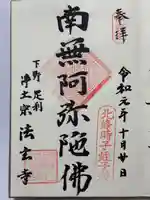 奉拝
令和元年十月廿日
北條時子・蛭子
南無阿弥陀佛
下野 足利
浄土宗 法玄寺